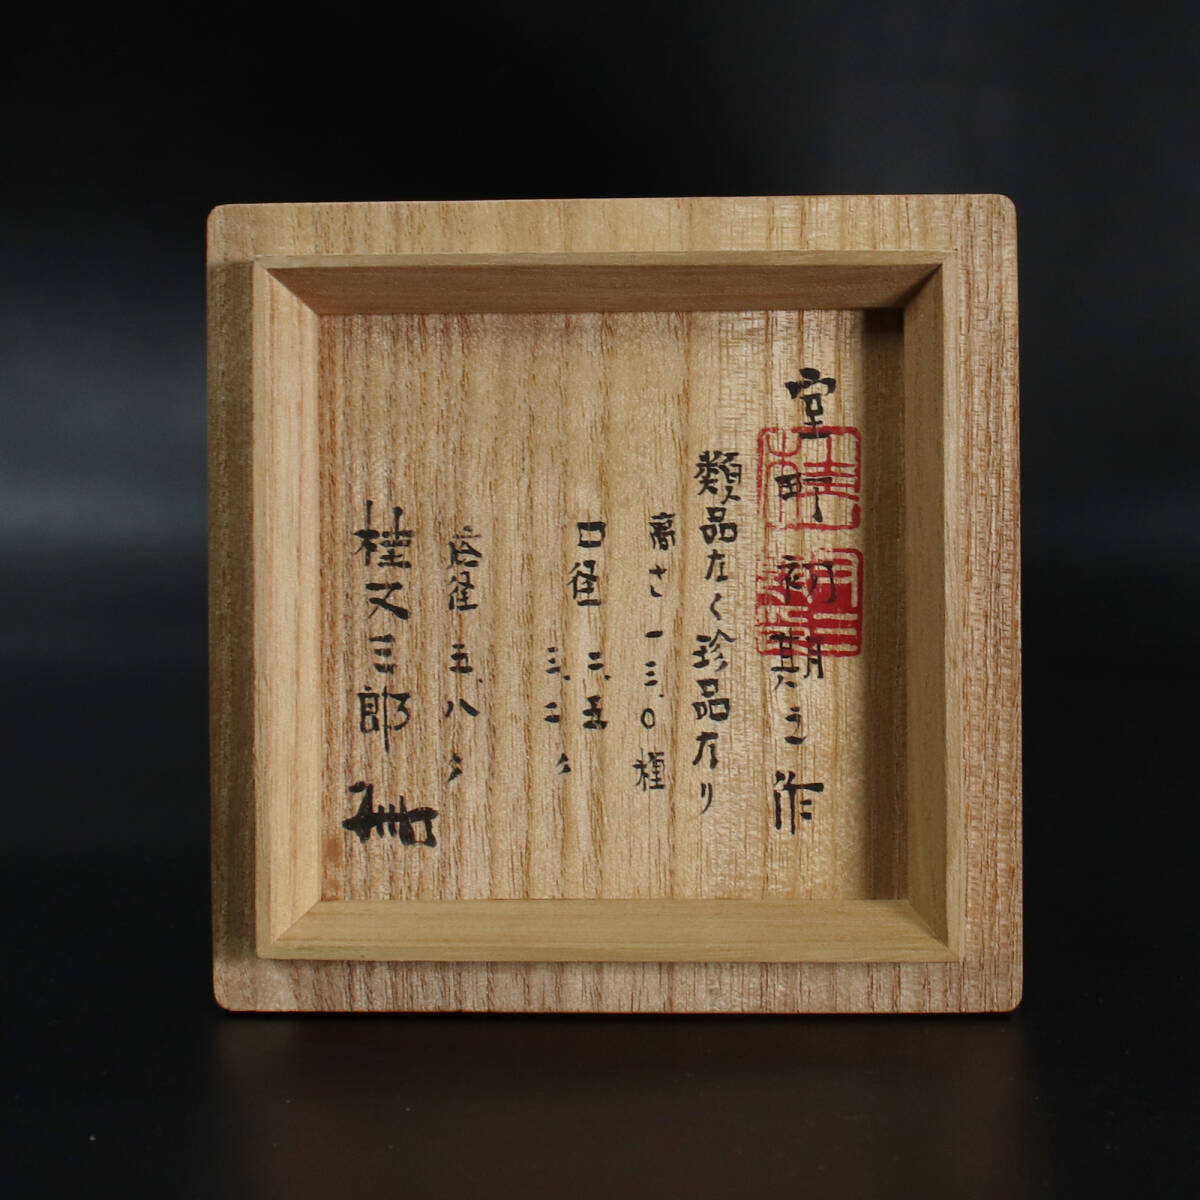 室町初期之作
類品なく珍品なり
高さ 一三.〇 糎
口径 二.五
三.二 〃
底径 五.八 〃
桂又三郎